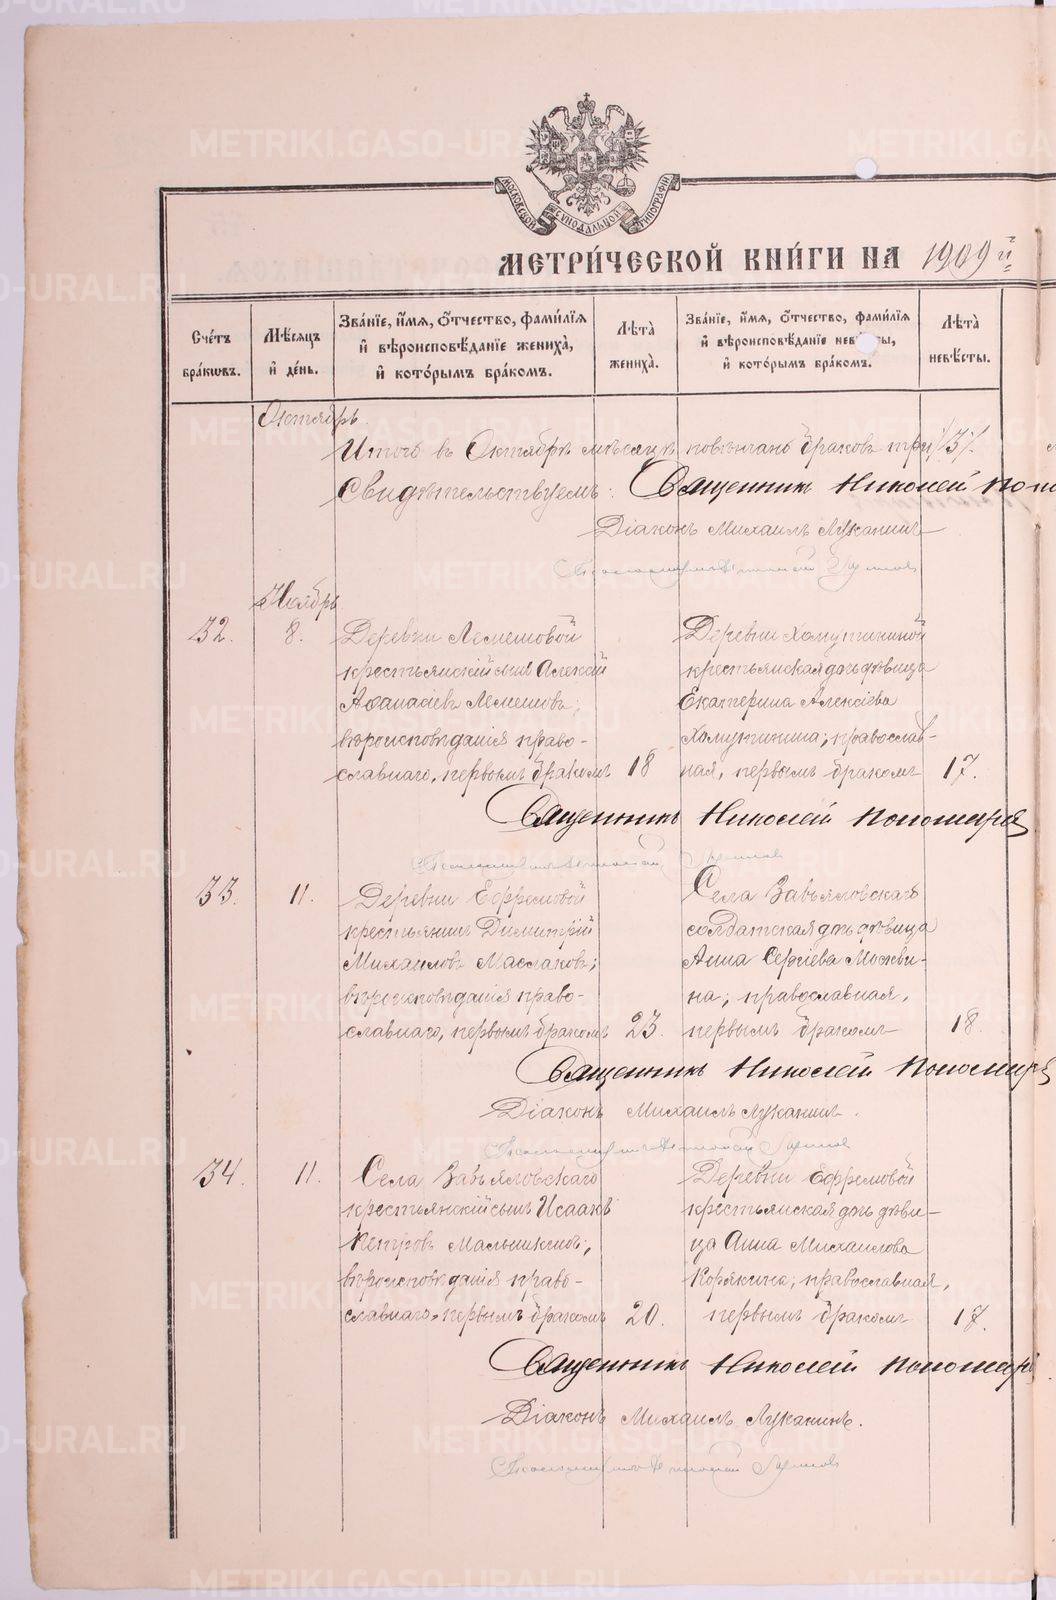 МОСКОВСКОЙ СУНОДАЛЬНОЙ ТИПОГРАФІИ
МЕТРИ́ЧЕСКОЙ КНИ́ГИ НА 1909й
Сче́тъ бра́ковъ.
Мѣ́сяцъ и де́нь.
Зва́нїе, и́мѧ, о́тчество, фами́лїѧ и вѣроисповѣ́данїе жениха̀, и кото́рымъ бра́комъ.
Лѣта̀ жениха̀.
Зва́нїе, и́мѧ, о́тчество, фами́лїѧ и вѣроисповѣ́данїе нев ты, и кото́рымъ бра́комъ.
Лѣта̀ невѣ́сты.
Октябрь.
Итого въ Октябрѣ мѣсяцѣ повѣнчано браковъ три /3/.
Свидѣтельствуемъ: Священникъ Николай
Діаконъ Михаилъ Луканинъ
Ноябрь
32. 8.
Деревни Лемешовой
крестьянскій сынъ Алексій
Аѳанасіевъ Лемешовъ,
вѣроисповѣданія право-
славнаго, первымъ бракомъ 18
Деревни Хомутининой
крестьянская дочь дѣвица
Екатерина Алексіева
Хомутинина; православ-
ная, первымъ бракомъ 17.
Священникъ Николай Пономаре
33. 11.
Деревни Ефремовой
крестьянинъ Димитрій
Михаиловъ Маслаковъ;
вѣроисповѣданія право-
славнаго, первымъ бракомъ 23.
Села Завьяловскаго
солдатская дочь дѣвица
Анна Сергіева Москви-
на; православная,
первымъ бракомъ 18.
Священникъ Николай Пономаре
Діаконъ Михаилъ Луканинъ.
34. 11.
Села Завьяловскаго
крестьянскій сынъ Исаакъ
Петровъ Мальчикинъ;
вѣроисповѣданія право-
славнаго, первымъ бракомъ 20.
Деревни Ефремовой
крестьянская дочь дѣви-
ца Анна Михаилова
Корякина, православная,
первымъ бракомъ 17.
Священникъ Николай Пономар
Діаконъ Михаилъ Луканинъ.
METRIKI.GASO-URAL.RU